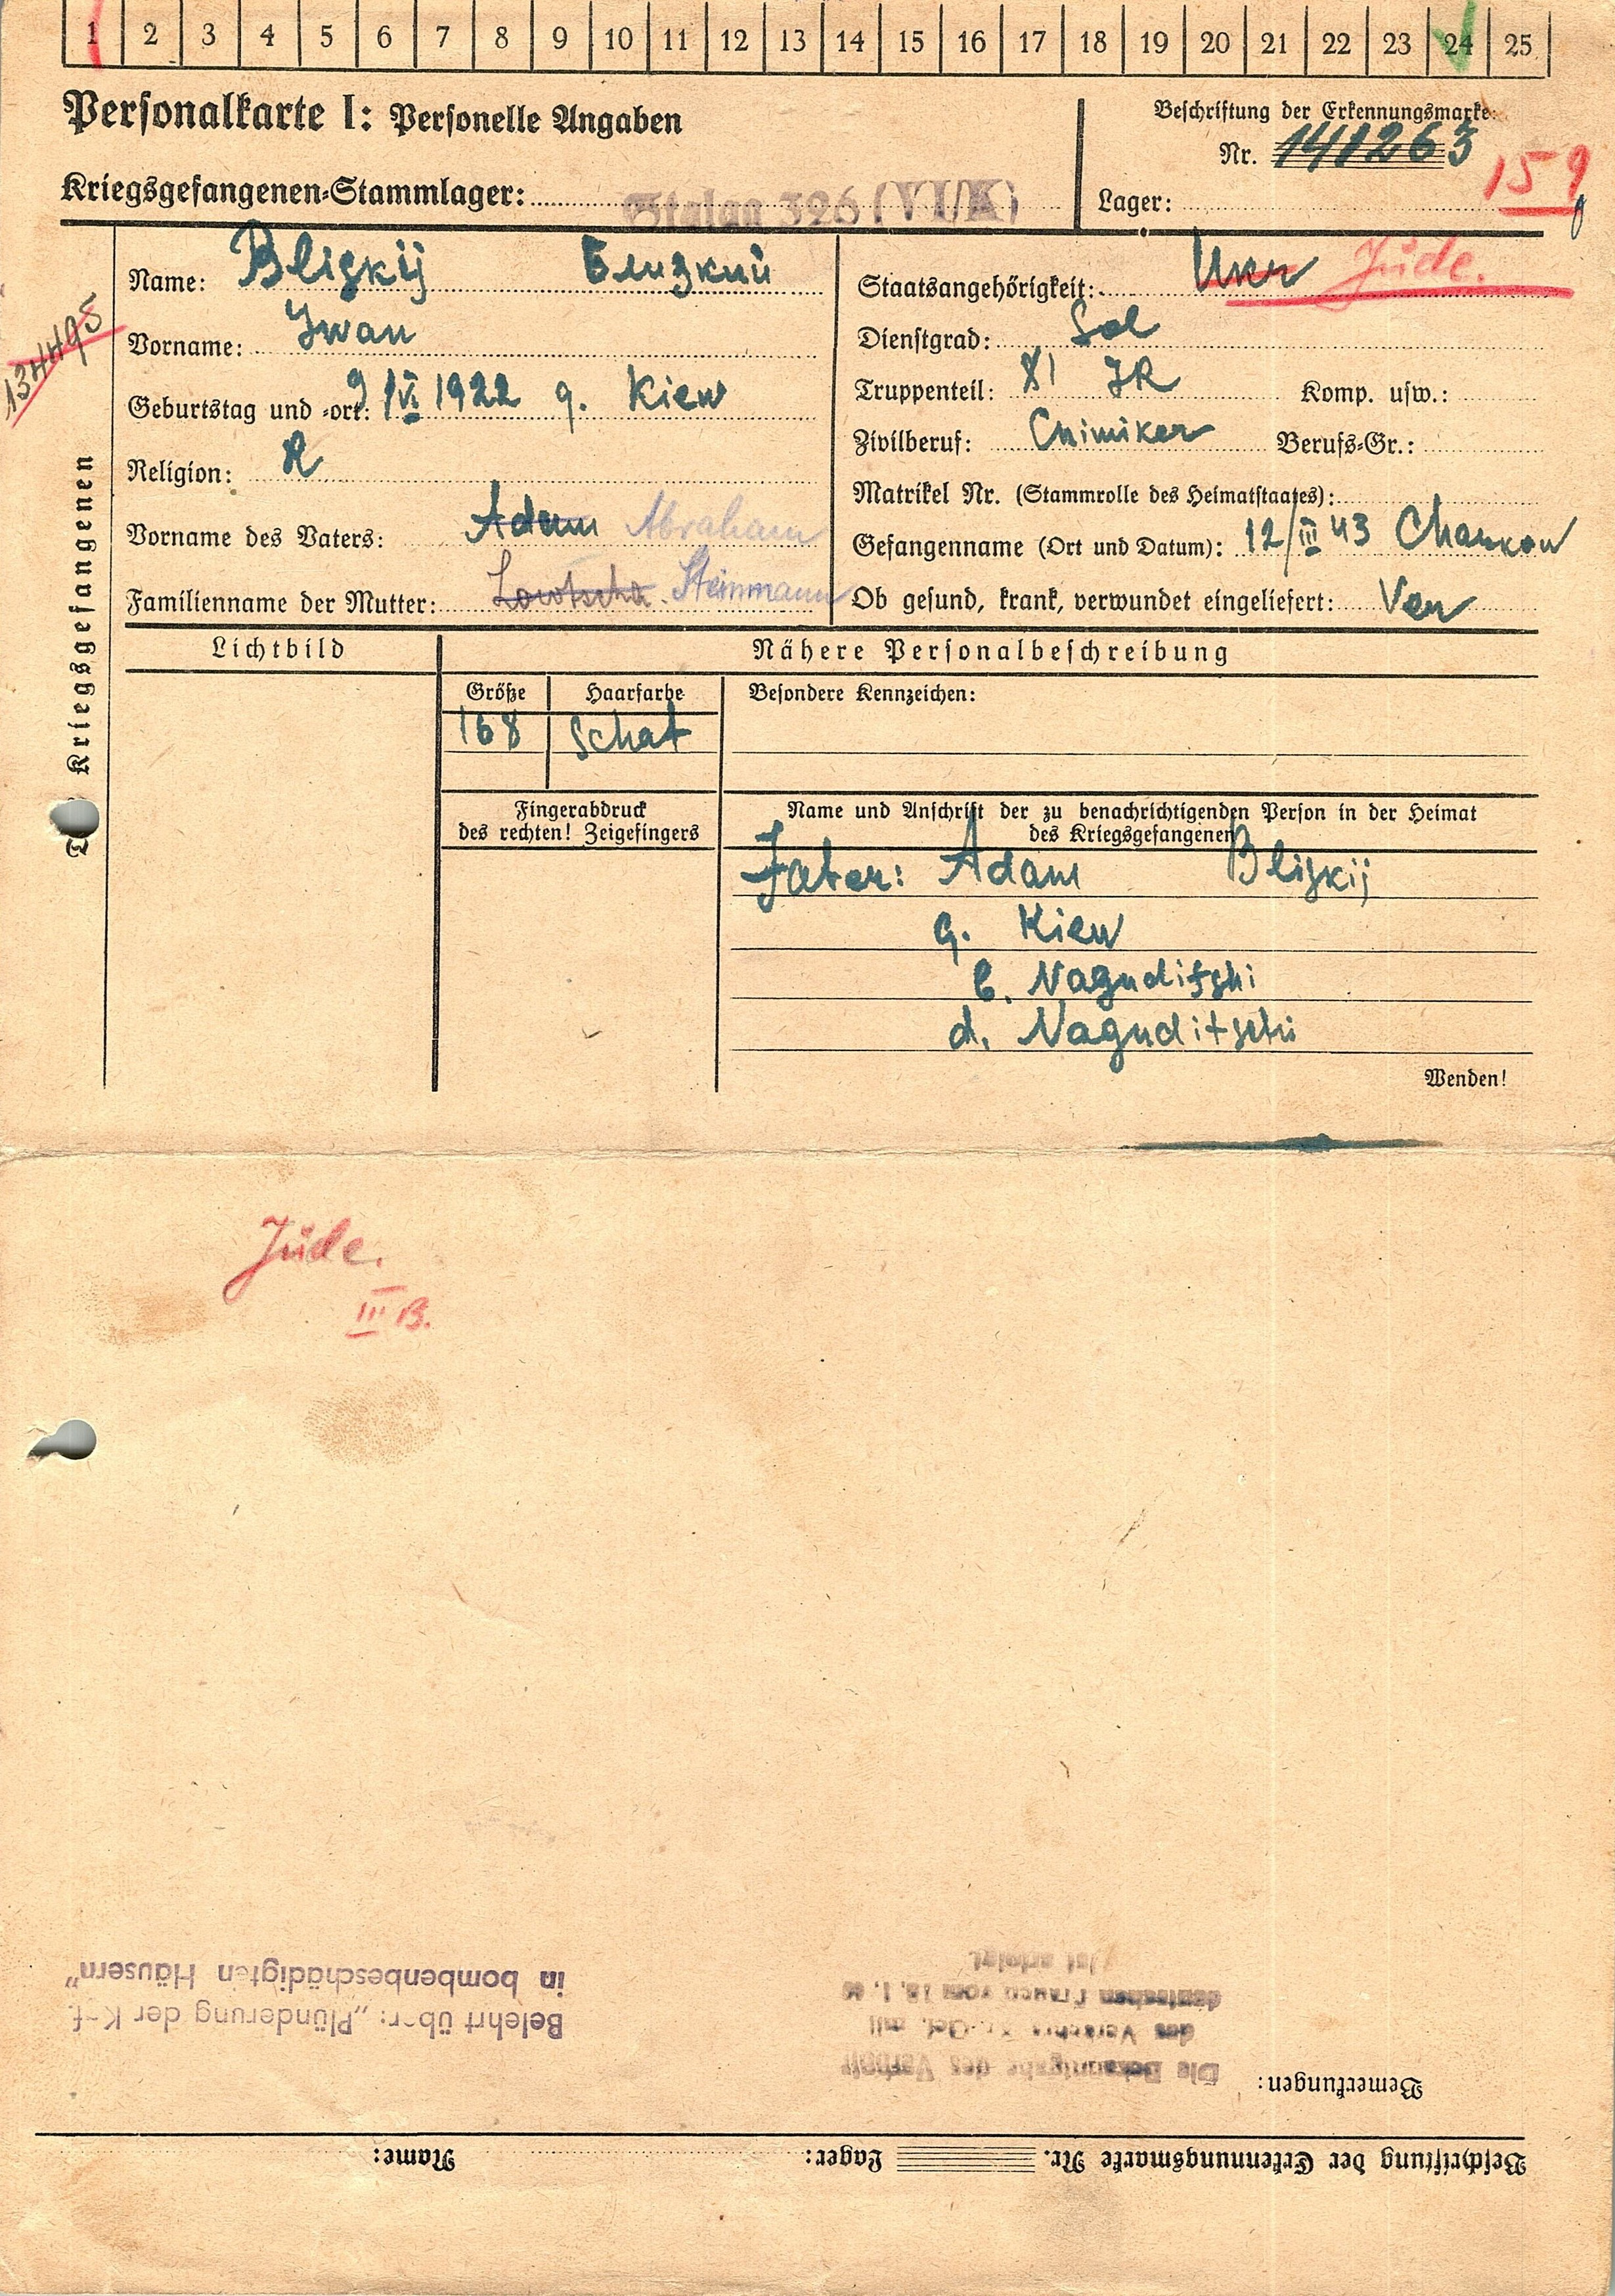 1 2 3 4 5 6 7 8 9 10 11 12 13 14 15 16 17 18 19 20 21 22 23 24 25
Personalkarte I: Personelle Angaben
Beschriftung der Erkennungsmarke:
Nr. 141263
159
Kriegsgefangenen-Stammlager: Stalag 326 (VI/K)
Lager:
134495
Des Kriegsgefangenen
Name: Bliskij Близкий
Vorname: Iwan
Geburtstag und -ort: 9 IVI 1922 g. Kiew
Religion: R
Vorname des Vaters: Adam Abraham
Familienname der Mutter: Lowtscha. Steinmann
Staatsangehörigkeit: Ukr Jude.
Dienstgrad: Sol
Truppenteil: 81 JR Komp. usw.:
Zivilberuf: Chimiker Berufs-Gr.:
Matrikel Nr. (Stammrolle des Heimatstaates):
Gefangenname (Ort und Datum): 12/III 43 Charkow
Ob gesund, krank, verwundet eingeliefert: Ver
Lichtbild
Nähere Personalbeschreibung
Größe Haarfarbe Besondere Kennzeichen:
168 schat
Fingerabdruck
des rechten! Zeigefingers
Name und Anschrift der zu benachrichtigenden Person in der Heimat
des Kriegsgefangenen
Fater: Adam Bliskij
g. Kiew
b. Naguditshi
d. Naguditschi
Wenden!
Jude.
III B.
Beschriftung der Erkennungsmarke Nr. Lager: Name:
Bemerkungen:
Die Bekanntgabe des Verbots
des Verkehrs Kr.-Gef. mit
deutschen Frauen vom
ist erfolgt.
Belehrt über: „Plünderung der Kgf.
in bombenbeschädigten Häusern"